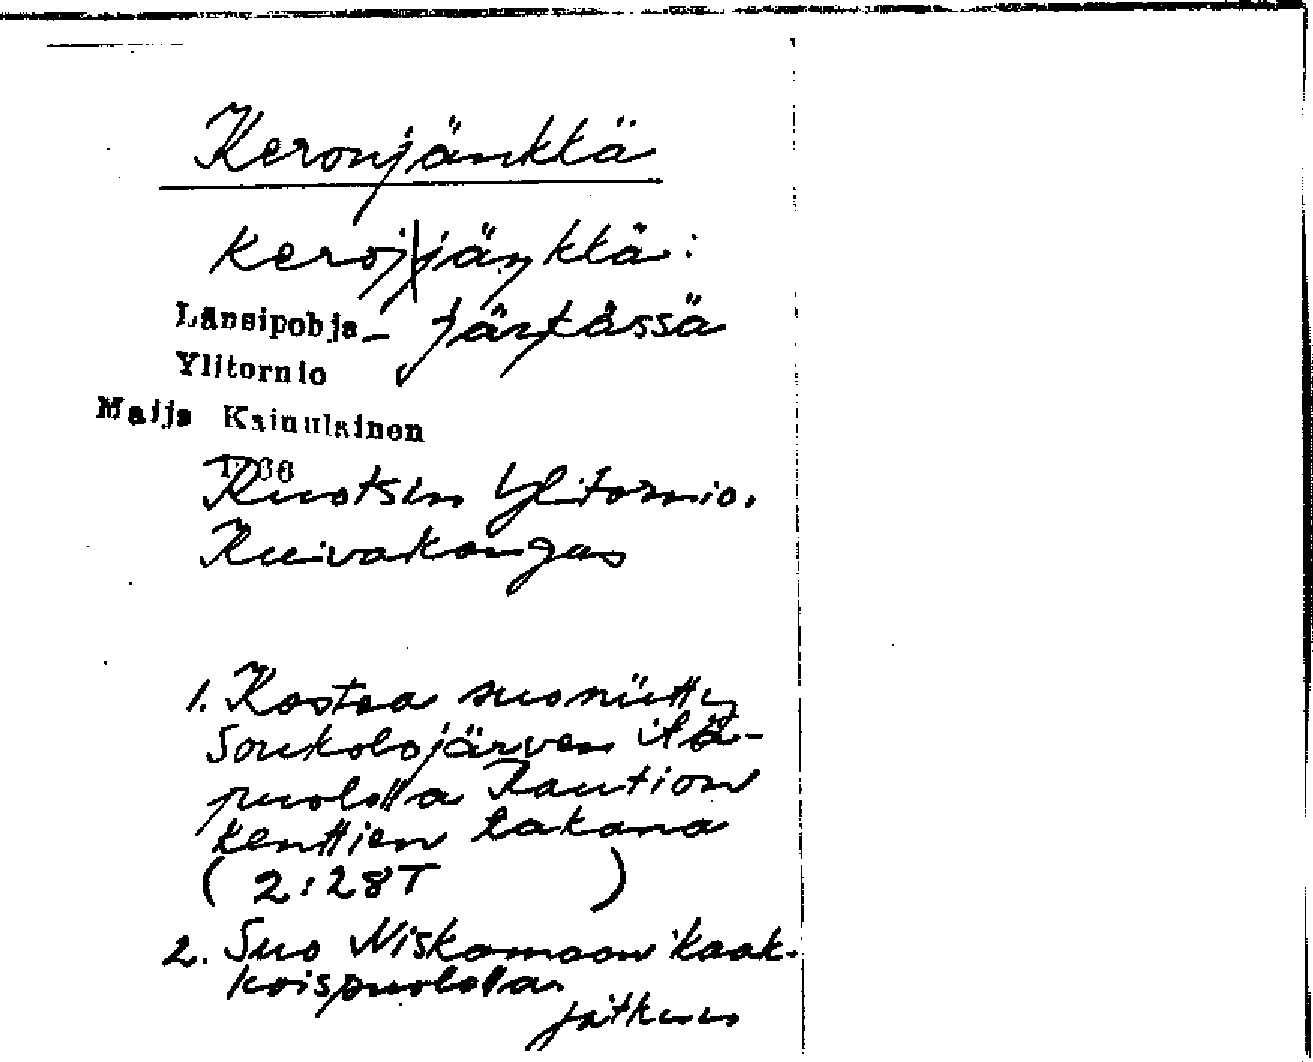 Keronjänkkä
keroj|jäŋkkä:
Länsipohja - jäŋkässä
Ylitornio
Maija Kainulainen
Ruotsin Ylitornio.
Kuivakangas
1. Kostea suoniitty
Soukolojärven itä-
puolella Kaution
kenttien takana
( 2:28T )
2. Suo Niskamaan kaak-
koispuolella
jatkuu